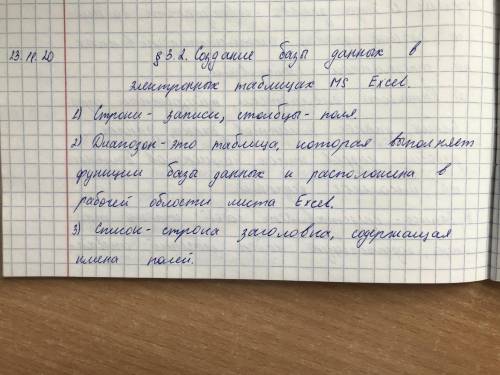 23.11.20 § 3.2. Создание базы данных в
электронных таблицах MS Excel.
1) Строки - записи, столбцы - поля.
2) Диапозон - это таблица, которая выполняет
функции базы данных и расположена в
рабочей области листа Excel.
3) Список - строка заголовка, содержащая
имена полей.